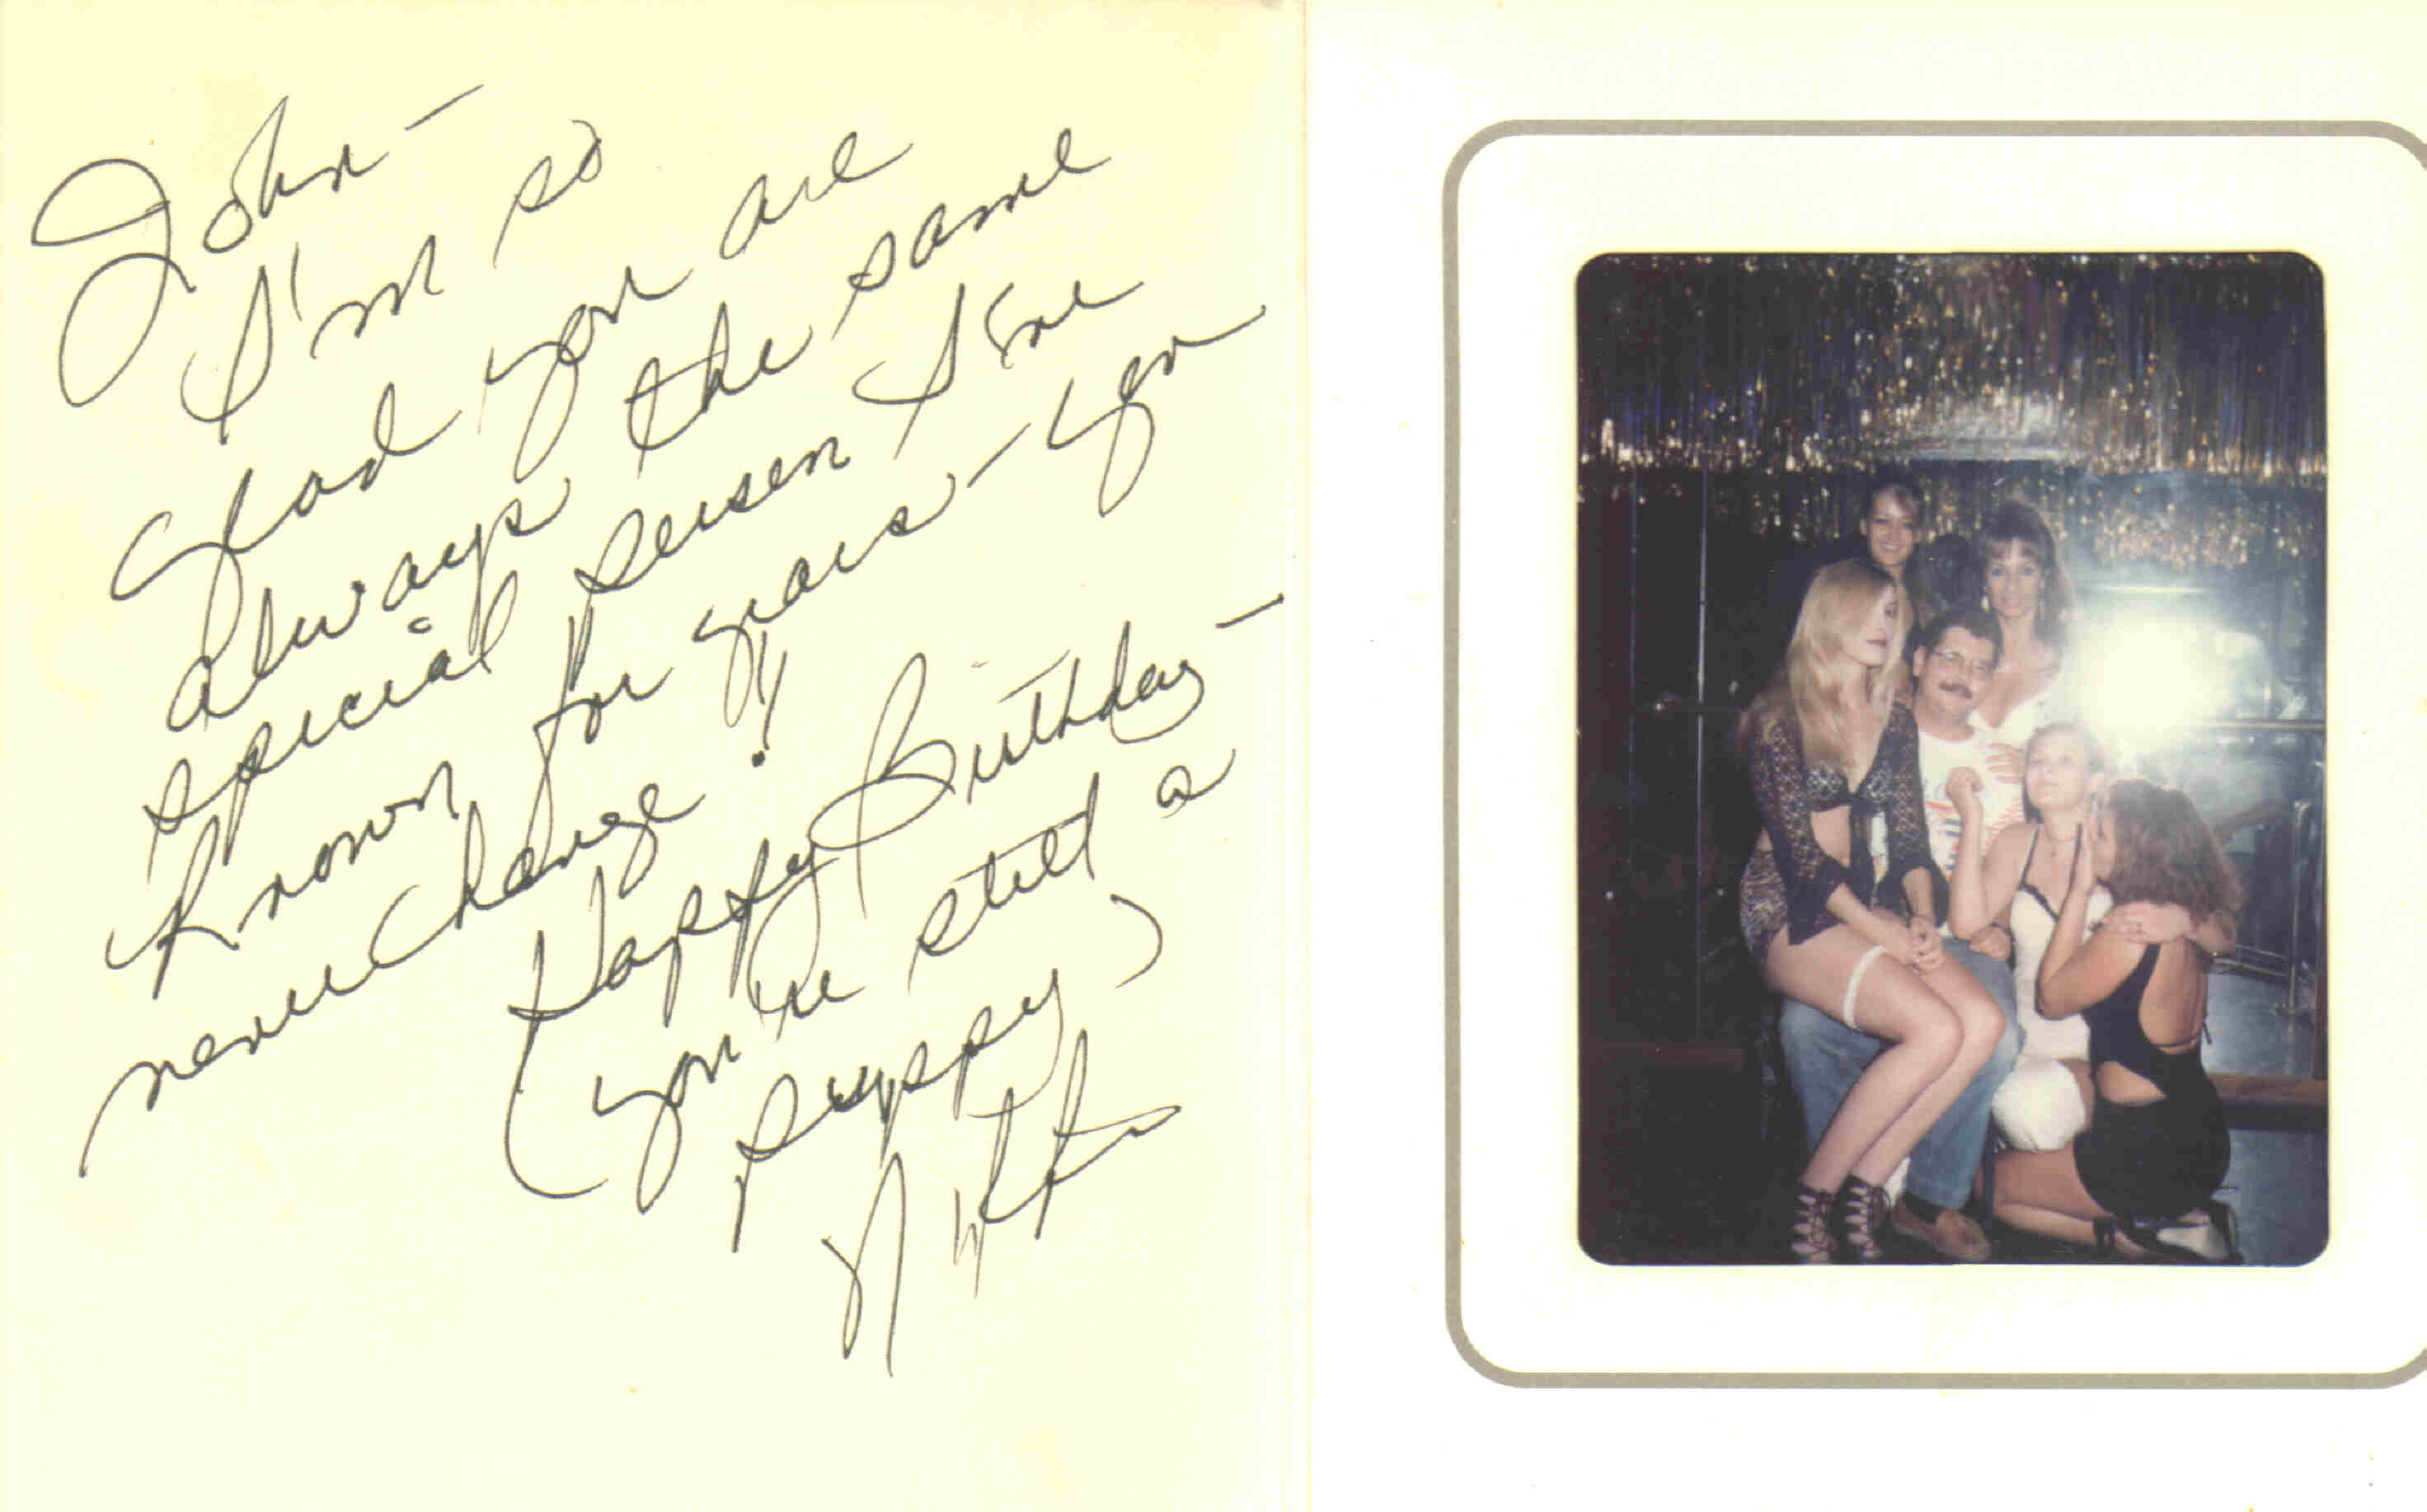 John -
I'm so
glad you are
always the same
special person I've
known for years - you
never change!!
Happy Birthday -
(you're still a
puppy)